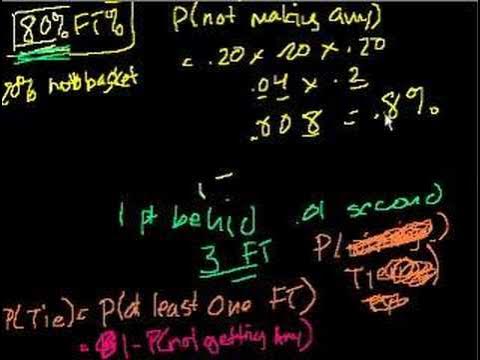 80% FT%
20% no basket
P(not making any)
= .20 x 20 x .20
.04 x .2
.008 = .8%
1 pt behind .01 second
3 FT
P(
Tie
P(Tie) = P(at least one FT)
= 1 - P(not getting any)